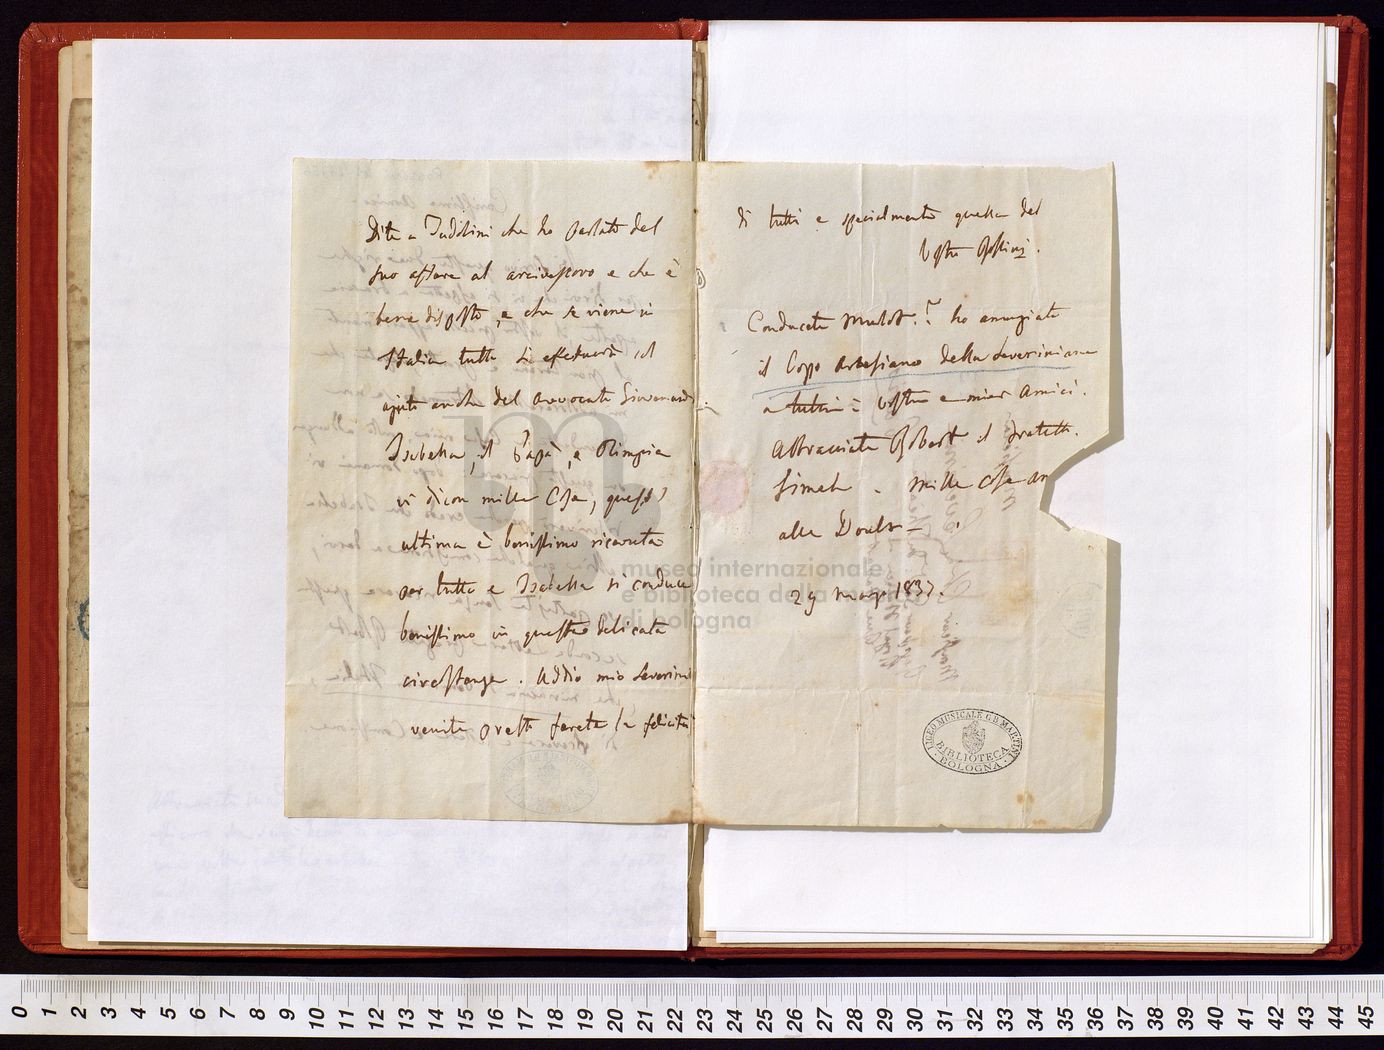 Dite a Tadolini che ho parlato del
suo affare al arcivescovo e che è
bene disposto, e che se viene in
Italia tutto si effettuerà col
ajuto anche del Avvocato Giovanardi
Isabella, il Papà, e Olimpia
vi dicon mille Cose, quest
ultima è benissimo ricevuta
per tutto e Isabella si conduce
benissimo in queste delicate
circostanze. Addio mio Severini
venite presto farete la felicità
di tutti e specialmente quella del
Vostro Rossini.
Conducete ho annunziato
il Corpo Artesiano della Severiniana
a tutti i Vostri e miei Amici.
Abbracciate Robert il fratello
mille Cose an
alla
29 1837.
LICEO MUSICALE G.B. MARTINI
BIBLIOTECA
BOLOGNA
museo internazionale
e biblioteca della
di bologna
0 1 2 3 4 5 6 7 8 9 10 11 12 13 14 15 16 17 18 19 20 21 22 23 24 25 26 27 28 29 30 31 32 33 34 35 36 37 38 39 40 41 42 43 44 45